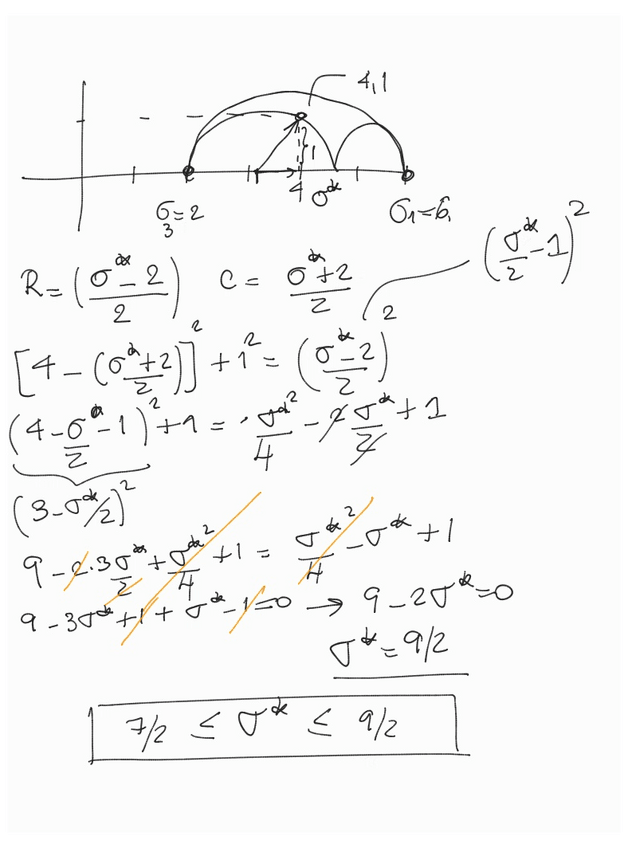 4,1
1
4 σ*
σ₃=2 σ₁=6
R=(σ*-2/2) C= σ*+2/2 (σ*/2-1)²
[4-(σ*+2/2)]²+1²=(σ*-2/2)²
(4-σ*/2-1)²+1=σ*²/4-2σ*/2+1
(3-σ*/2)²
9-2·3σ*/2+σ*²/4+1=σ*²/4-σ*+1
9-3σ*+1+σ*-1=0 → 9-2σ*=0
σ*=9/2
7/2 ≤ σ* ≤ 9/2